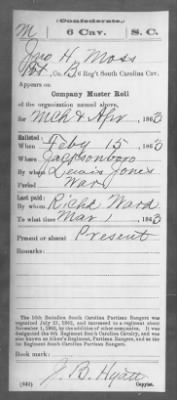 (Confederate.)
M 6 Cav. S. C.
Jno H. Moss
Pvt, Co. B, 6 Reg't South Carolina Cav.
Appears on
Company Muster Roll
of the organization named above,
for Mch & Apr, 1863
Enlisted:
When Feby 15, 1863
Where Jacksonboro
By whom Lewis Jones
Period War
Last paid:
By whom Richd Ward
To what time Mar 1, 1863
Present or absent Present
Remarks:
The 16th Battalion South Carolina Partisan Rangers was
organized July 21, 1862, and increased to a regiment about
November 1, 1862, by the addition of other companies. It was
designated the 6th Regiment South Carolina Cavalry, and was
also known as Aiken's Regiment, Partisan Rangers, and as the
1st Regiment South Carolina Partisan Rangers.
Book mark:
J. B. Hyatt
(642) Copyist.